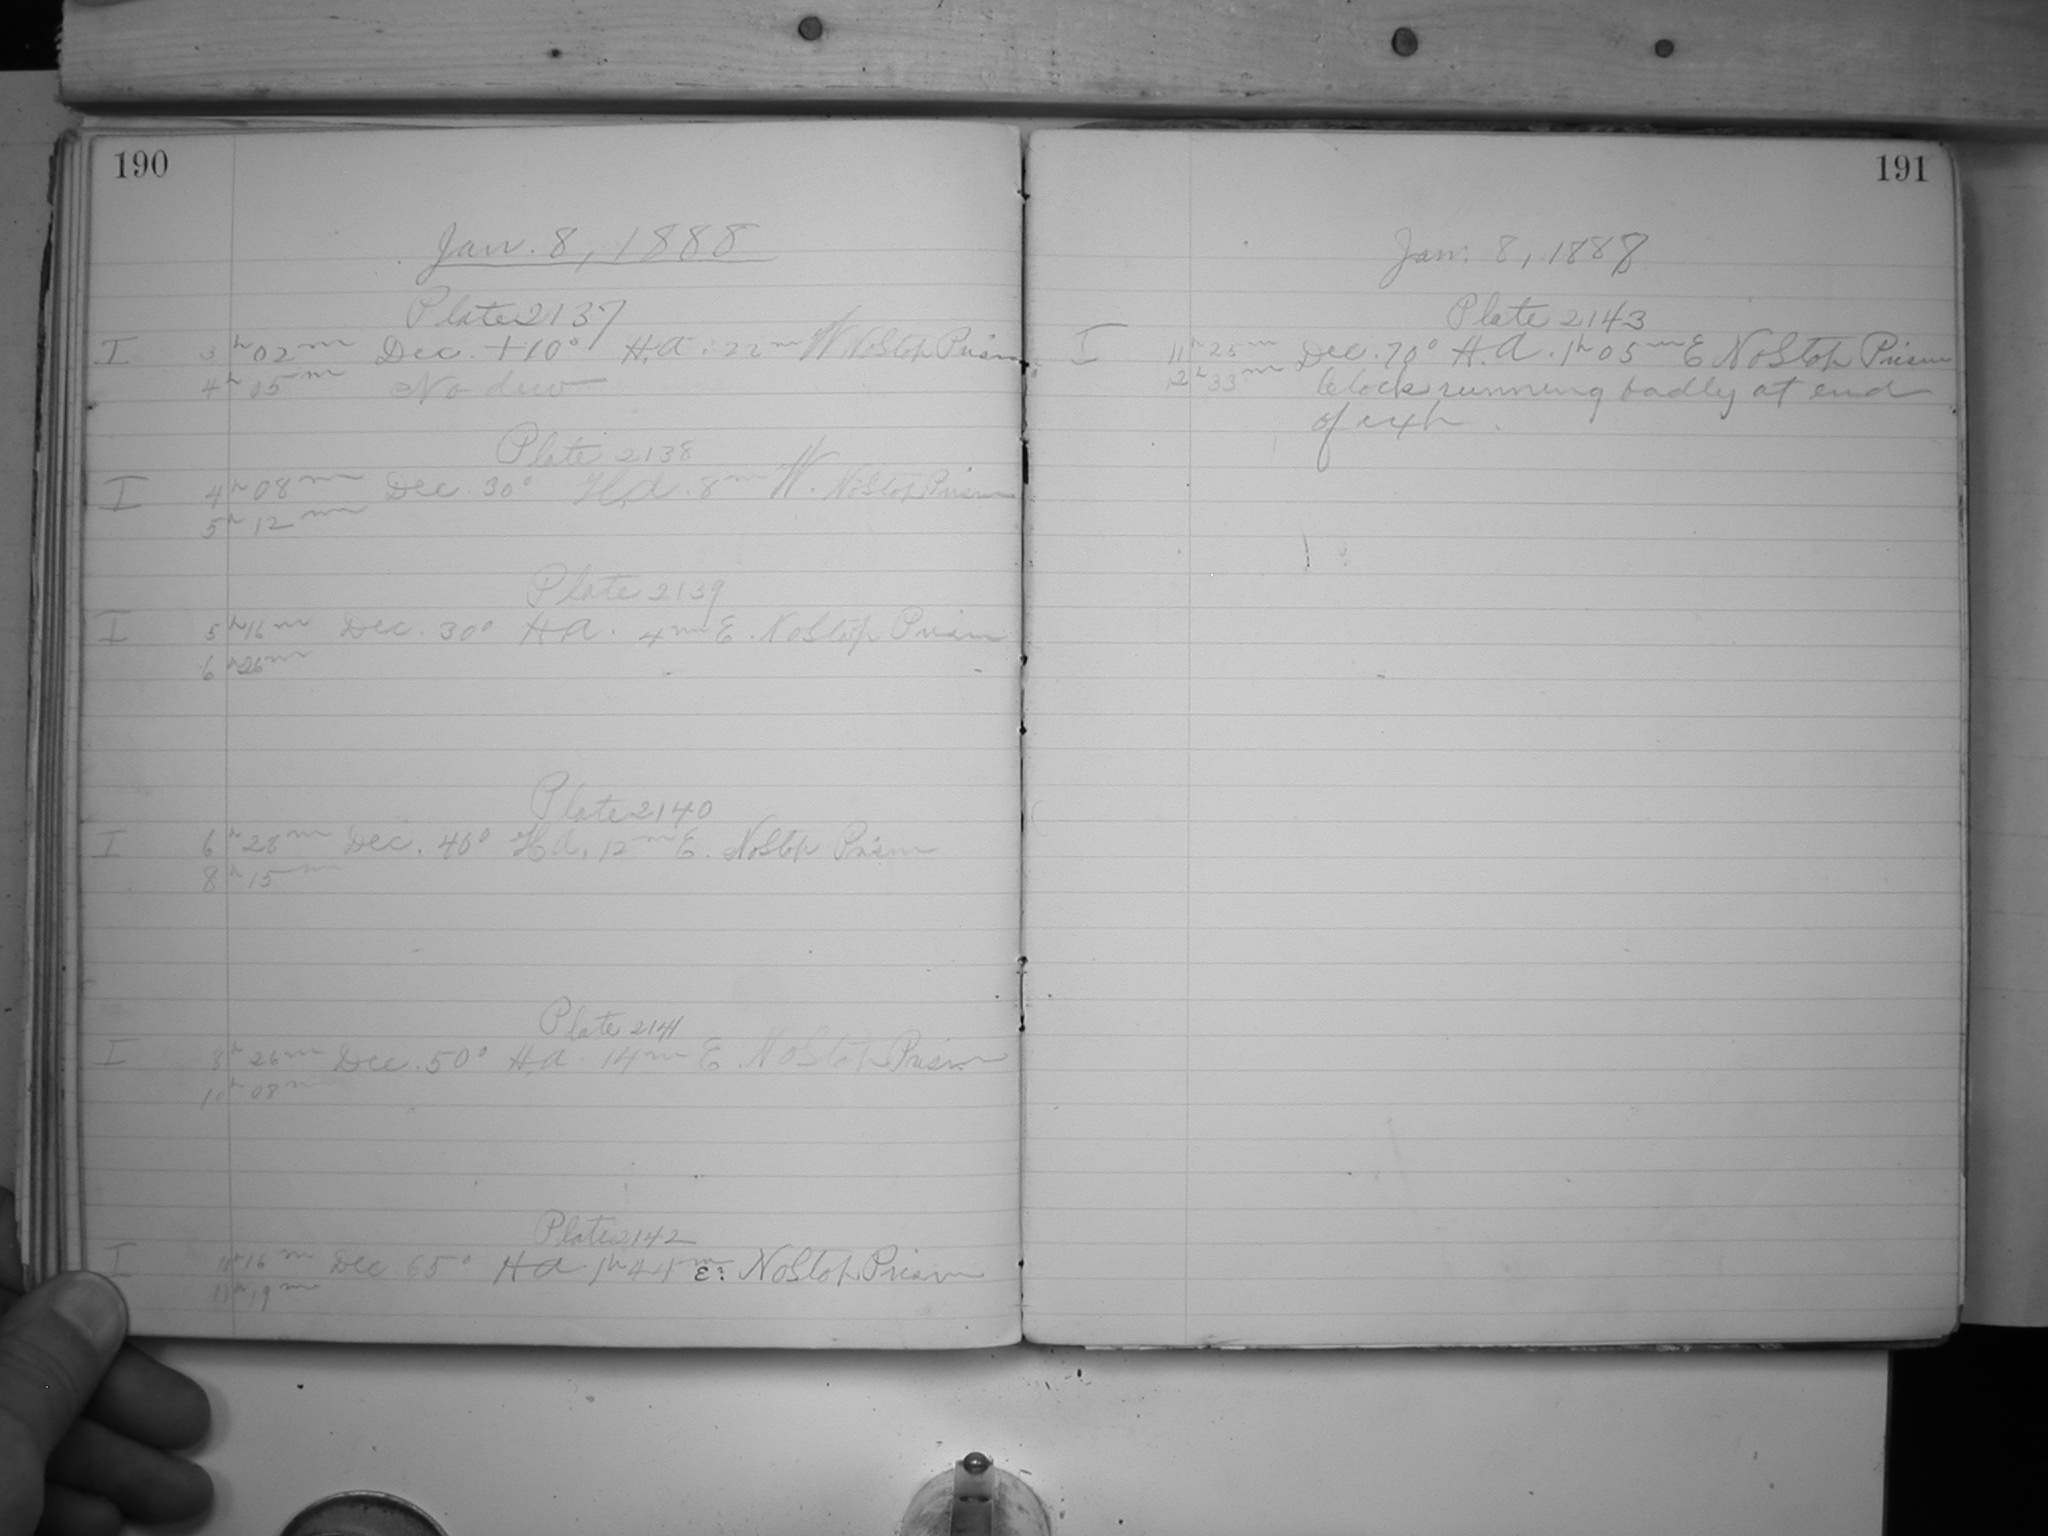 190
Jan. 8, 1888
Plate 2137
I 3h 02m Dec. +10° H.A. 22m W No Stop Prism
4h 05m No dew
Plate 2138
I 4h 08m Dec. 30° H.A. 8m W. No Stop Prism
5h 12m
Plate 2139
I 5h 16m Dec. 30° H.A. 4m E. No Stop Prism
6h 26m
Plate 2140
I 6h 28m Dec. 40° H.A. 12m E. No Stop Prism
8h 15m
Plate 2141
I 8h 26m Dec. 50° H.A. 14m E. No Stop Prism
10h 08m
Plate 2142
I 10h 16m Dec. 65° H.A. 1h 44m E. No Stop Prism
11h 19m
191
Jan. 8, 1888
Plate 2143
I 11h 25m Dec. 70° H.A. 1h 05m E No Stop Prism
12h 33m Clock running badly at end
of exp.